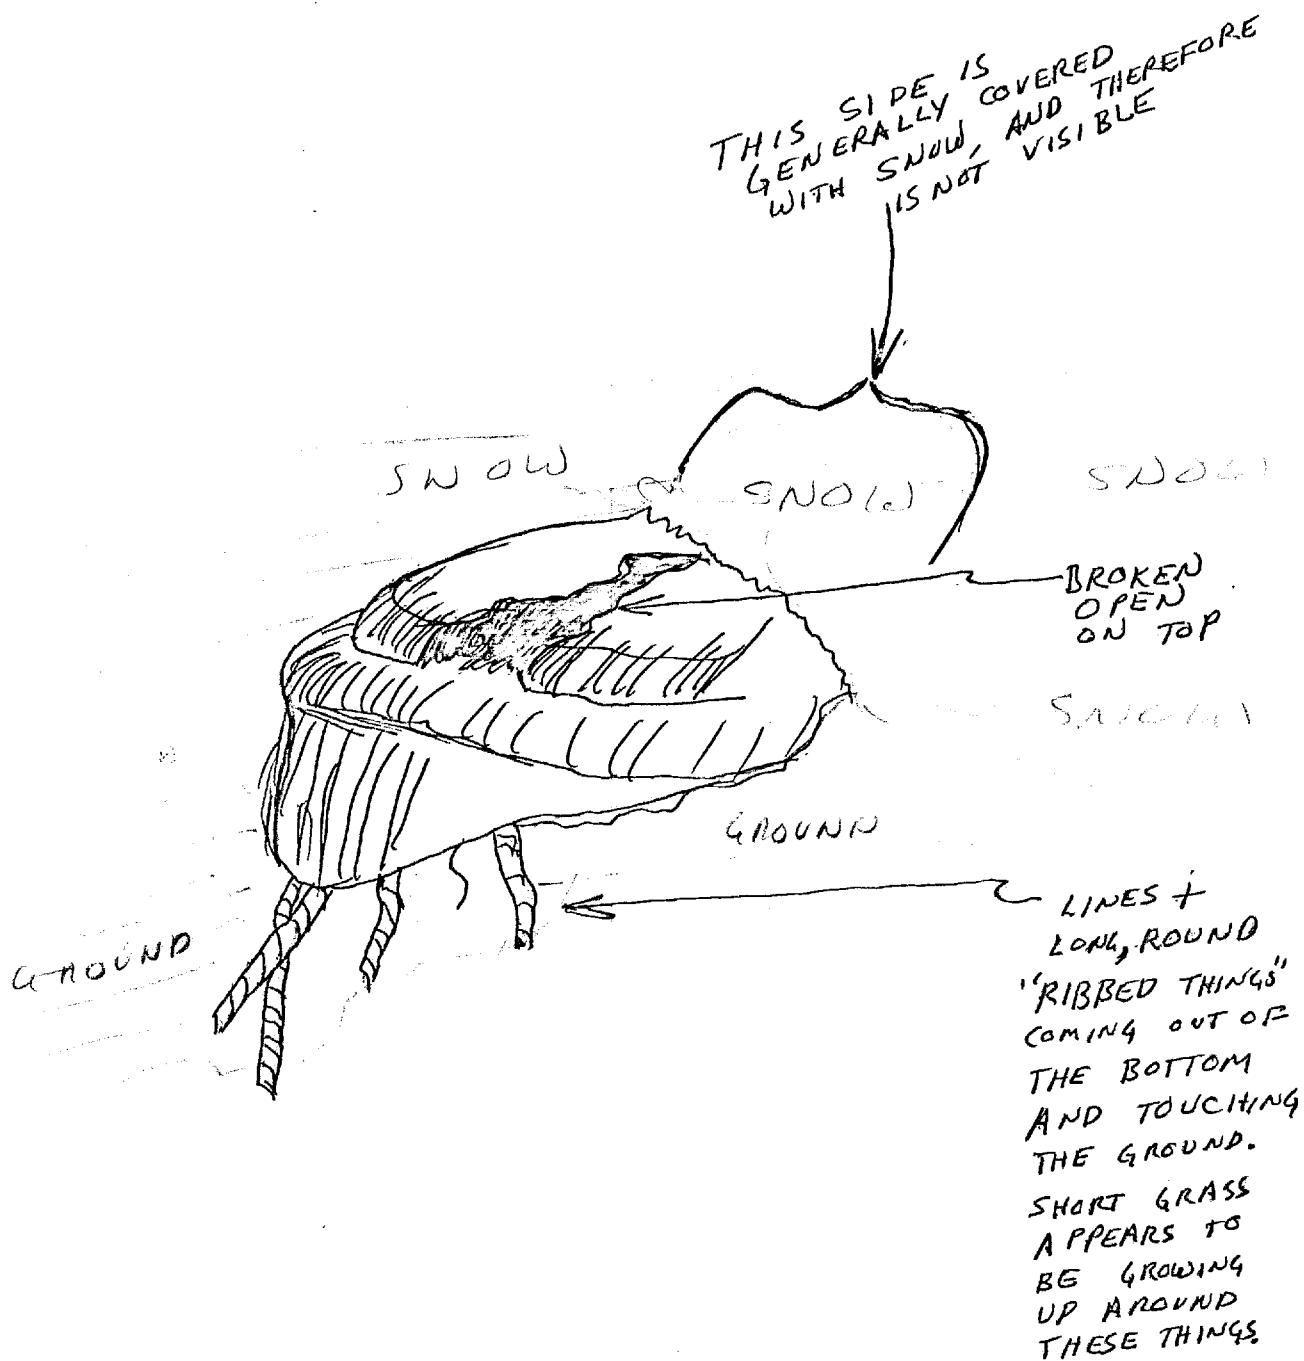 THIS SIDE IS
GENERALLY COVERED
WITH SNOW, AND THEREFORE
IS NOT VISIBLE
SNOW
SNOW
SNOW
BROKEN
OPEN
ON TOP
GROUND
GROUND
LINES +
LONG, ROUND
"RIBBED THINGS"
COMING OUT OF
THE BOTTOM
AND TOUCHING
THE GROUND.
SHORT GRASS
APPEARS TO
BE GROWING
UP AROUND
THESE THINGS.